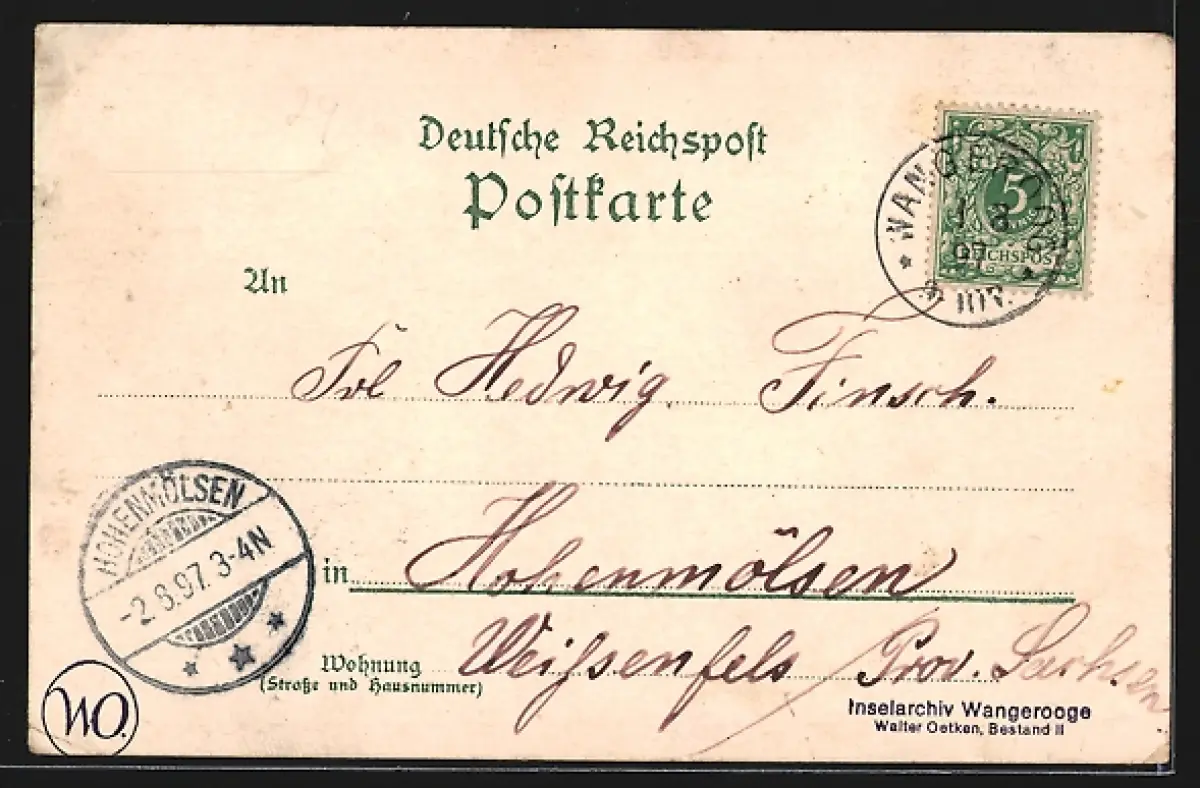 Deutsche Reichspost
Postkarte
An
WANGEROOG
1 8
97
5
REICHSPOST
Frl Hedwig Finsch.
HOHENMÖLSEN
-2.8.97. 3-4N
in Hohenmölsen
Wohnung Weißenfels / Prov. Sachsen
(Straße und Hausnummer)
WO.
Inselarchiv Wangerooge
Walter Oetken, Bestand II